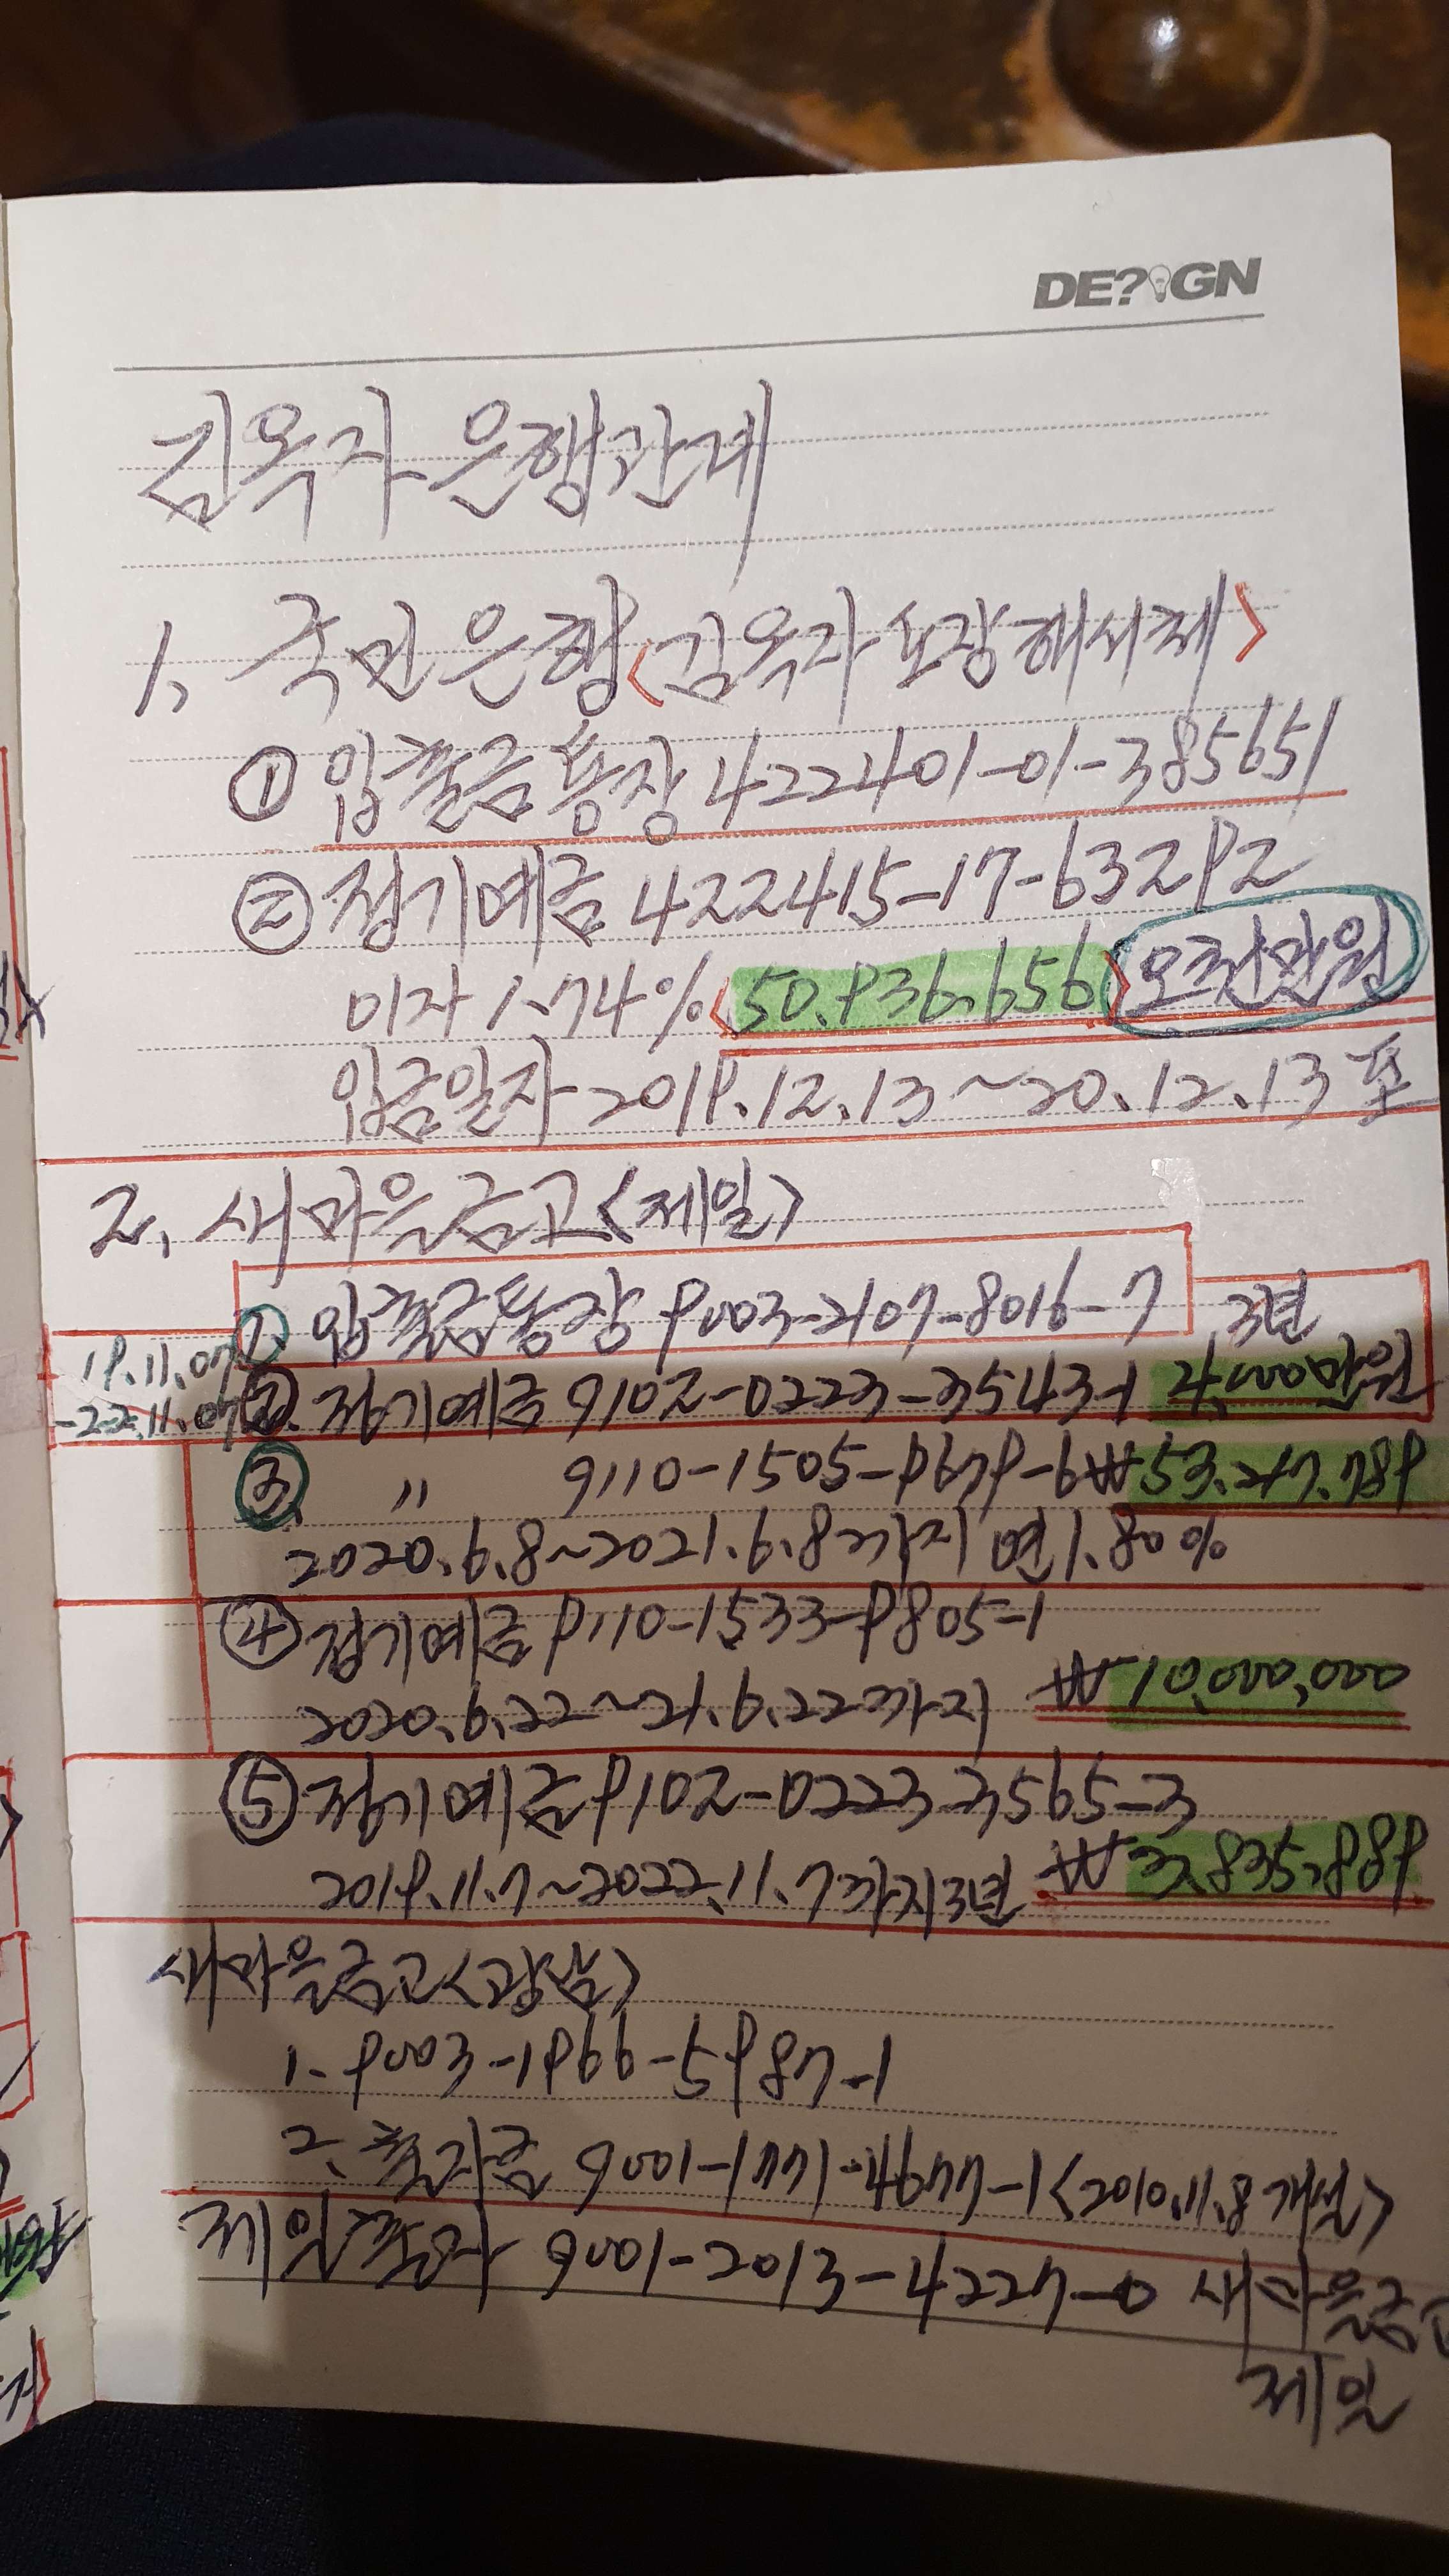 DE?GN
김옥자 은행관계
1, 국민은행<김옥자 도장 해서체>
① 입출금통장 422401-01-385651
② 정기예금 422415-17-63292
이자 1.74% <50.936.656> 오천만원
입금일자 2019.12.13~20.12.13
2, 새마을금고<제일>
① 입출금통장 9003-2107-8016-7 3년
19.11.07
② 정기예금 9102-0223-3543-1 만원
-22.11.07
③ 〃 9110-1505-9679-6 ₩53.217.789
2020.6.8~2021.6.8까지 연1.80%
④ 정기예금 9110-1533-9805-1
2020.6.22~21.6.22까지 ₩10,000,000
⑤ 정기예금 9102-0223-3565-3
2019.11.7~2022.11.7까지3년
새마을금고<광삼>
1. 9003-1966-5987-1
2. 출자금 9001-1771-4677-1<2010.11.8개설>
제일출자 9001-2013-4227-0 새마을금고
제일